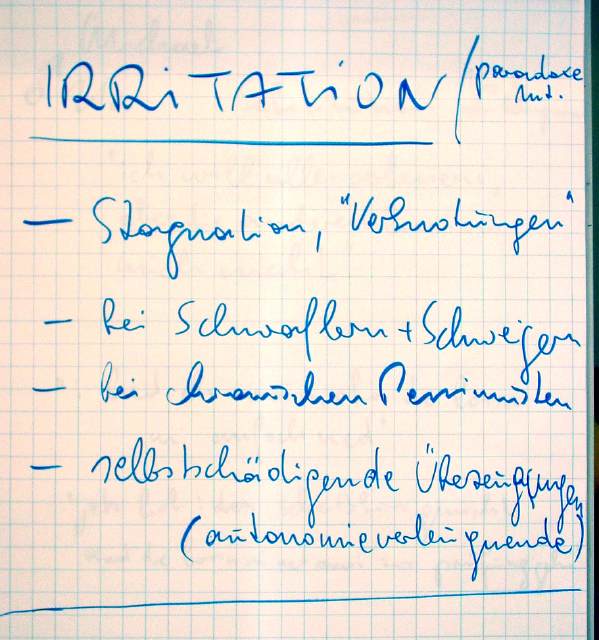 IRRiTATiON / paradoxe
Int.
– Stagnation, "Verknotungen"
– bei Schwaflern + Schweigern
– bei chronischen Pessimisten
– selbstschädigende Überzeugungen
(autonomieverleugnende)